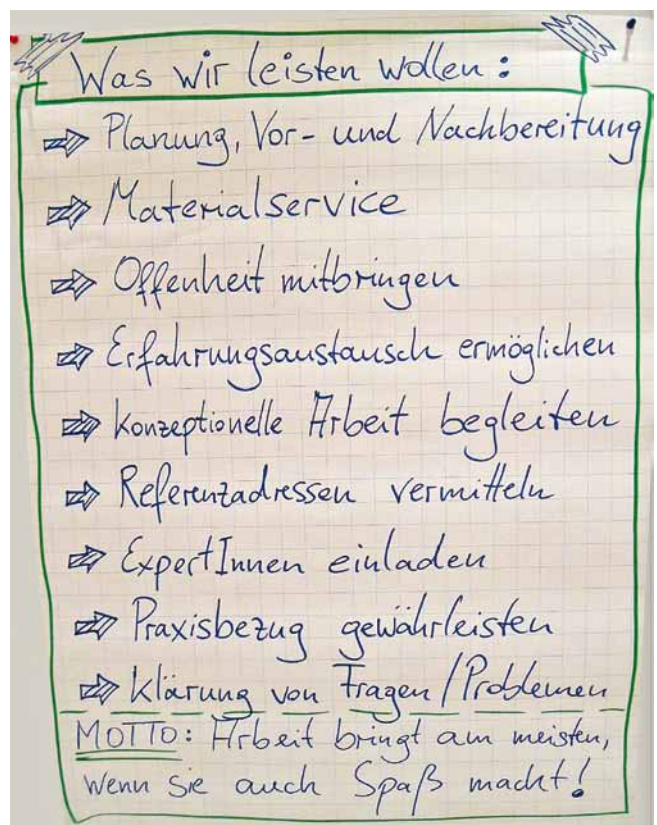 Was wir leisten wollen:
⇨ Planung, Vor- und Nachbereitung
⇨ Materialservice
⇨ Offenheit mitbringen
⇨ Erfahrungsaustausch ermöglichen
⇨ konzeptionelle Arbeit begleiten
⇨ Referenzadressen vermitteln
⇨ ExpertInnen einladen
⇨ Praxisbezug gewährleisten
⇨ Klärung von Fragen/Problemen
MOTTO: Arbeit bringt am meisten,
wenn sie auch Spaß macht!